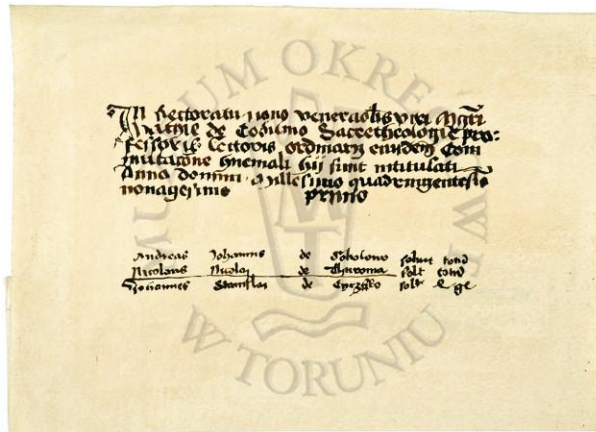 In Rectoratu nono venerabilis viri Mgri
Mathie de Cobilino Sacretheologie pro-
fessoris lectoris ordinarij eiusdem Com
mutacione hyemali hij sunt intitulati
Anno domini Millesimo quadringentesio
nonagesimo primo
Andreas Johannis de solvit totum
Nicolaus Nicolai de Thuronia solt totum
Johannes Stanislai de solt
MUZEUM OKRĘGOWE
W TORUNIU